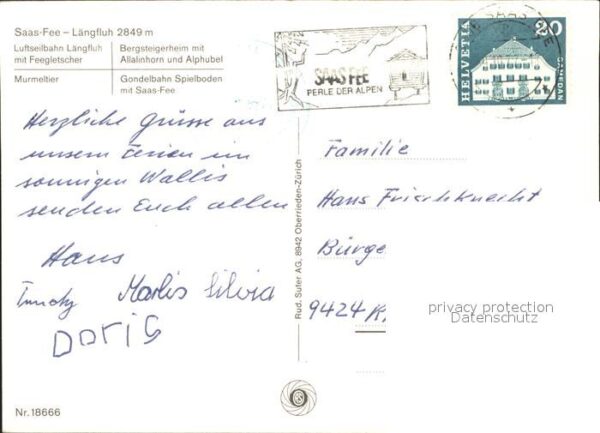 Saas-Fee – Längfluh 2849 m
Luftseilbahn Längfluh
mit Feegletscher
Bergsteigerheim mit
Allalinhorn und Alphubel
Murmeltier
Gondelbahn Spielboden
mit Saas-Fee
SAAS FEE
PERLE DER ALPEN
HELVETIA
20
SAMEDAN
Herzliche Grüsse aus
unsern Ferien im
sonnigen Wallis
senden Euch allen
Hans
Marlis Silvia
Doris
Rud. Suter AG, 8942 Oberrieden-Zürich
Familie
Hans Frischknecht
Bürge
9424
privacy protection
Datenschutz
Nr. 18666